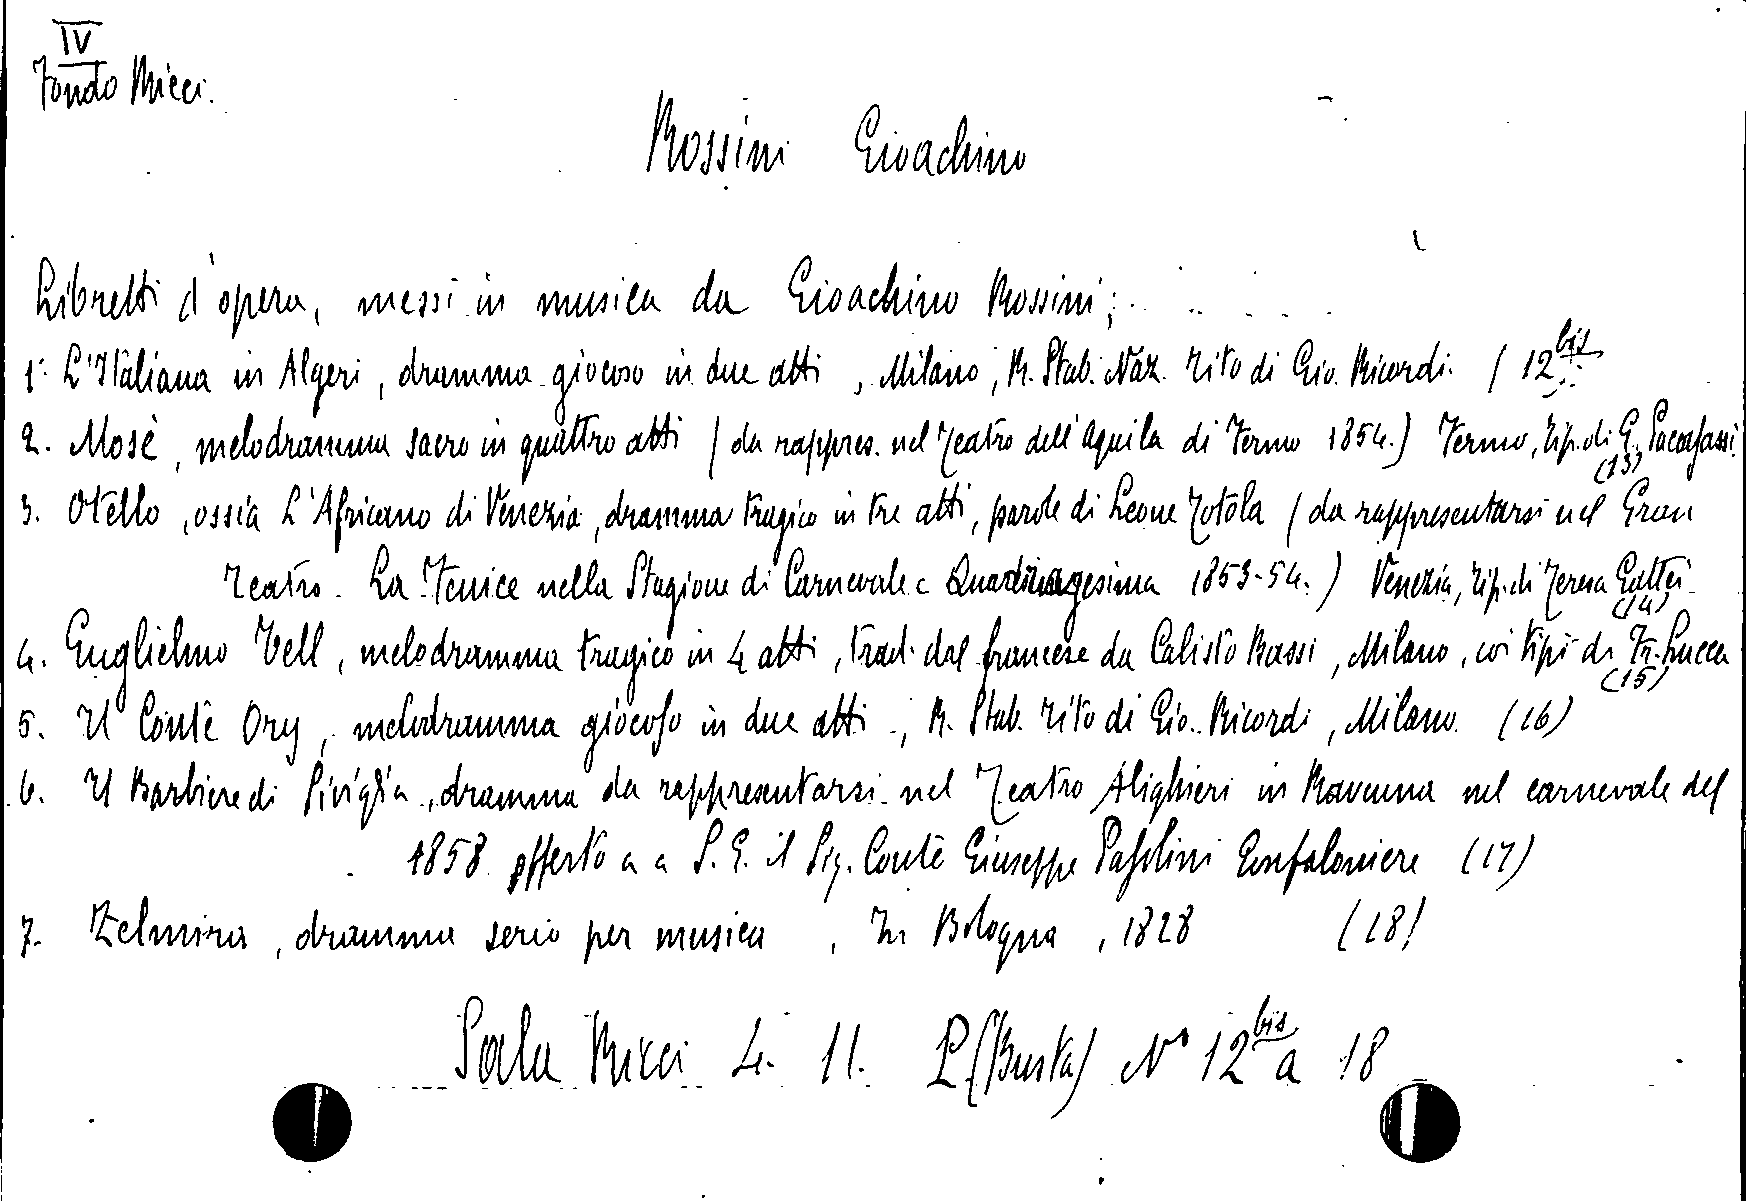 IV
Fondo Ricci.
Rossini Gioachino
Libretti d'opera, messi in musica da Gioachino Rossini;
1. L'Italiana in Algeri, dramma giocoso in due atti, Milano, R. Stab. Naz. Tito di Gio. Ricordi. (12 bis
2. Mosè, melodramma sacro in quattro atti (da rappres. nel Teatro dell'Aquila di Fermo 1854.) Fermo, Tip. di G. Paccasassi.
(13)
3. Otello, ossia L'Africano di Venezia, dramma tragico in tre atti, parole di Leone Totola (da rappresentarsi nel Gran
Teatro La Fenice nella Stagione di Carnevale e Quadragesima 1853-54.) Venezia, Tip. di Teresa Gattei
(14)
4. Guglielmo Tell, melodramma tragico in 4 atti, trad. dal francese da Calisto Bassi, Milano, coi tipi di Fr. Lucca
(15)
5. Il Conte Ory, melodramma giocoso in due atti, R. Stab. Tito di Gio. Ricordi, Milano. (16)
6. Il Barbiere di Siviglia, dramma da rappresentarsi nel Teatro Alighieri in Ravenna nel carnevale del
1858 offerto a a S. E. il Sig. Conte Giuseppe Pasolini Gonfaloniere (17)
7. Zelmira, dramma serio per musica, In Bologna, 1828 (18)
Sala Ricci 4. 11. L (Busta) N° 12 bis a 18